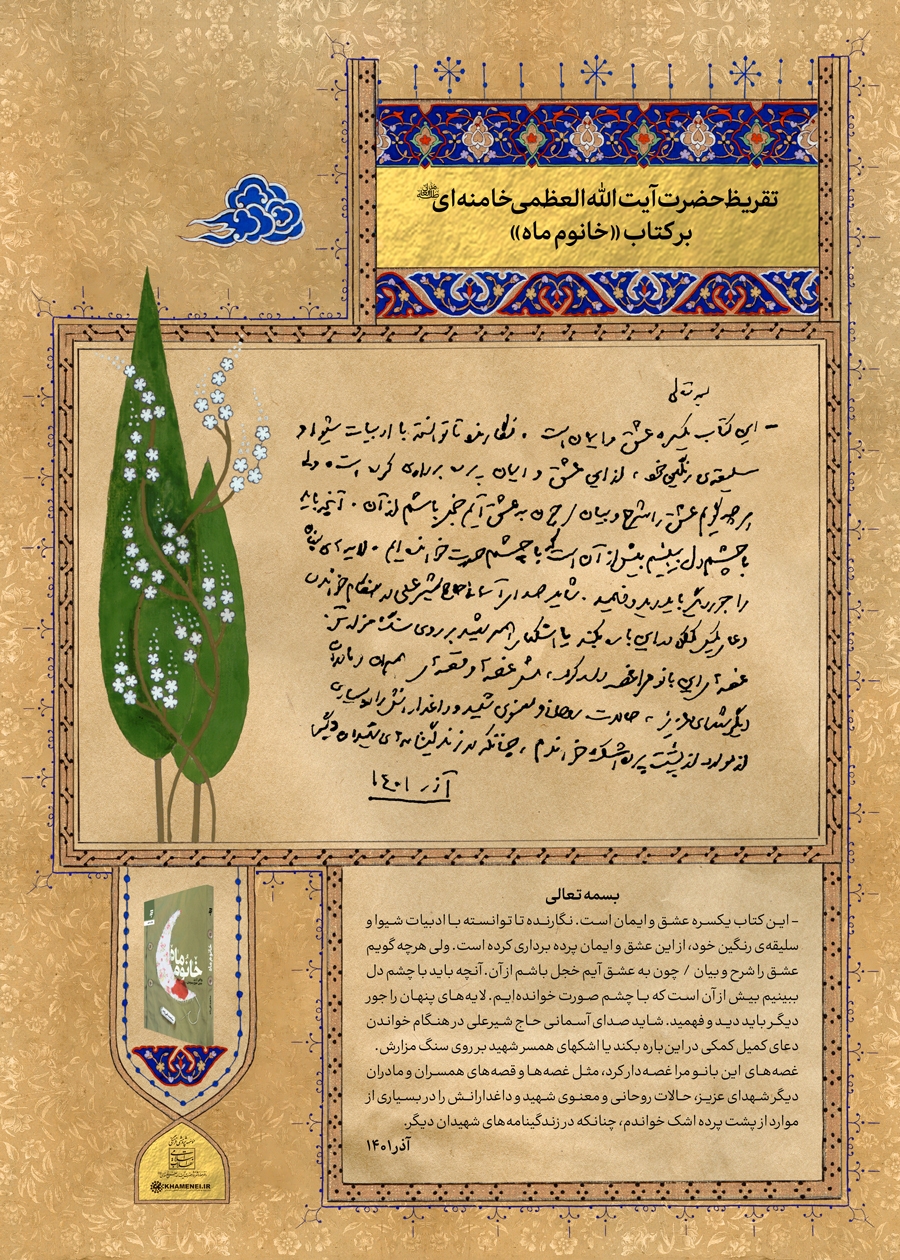 تقریظ حضرت آیت الله العظمی خامنه‌ای
بر کتاب «خانوم ماه»
بسمه تعالی
- این کتاب یکسره عشق و ایمان است. نگارنده تا توانسته با ادبیات شیوا و
سلیقه‌ی رنگین خود، از این عشق و ایمان پرده برداری کرده است. ولی
هرچه گویم عشق را شرح و بیان / چون به عشق آیم خجل باشم از آن. آنچه باید
با چشم دل ببینیم بیش از آن است که با چشم صورت خوانده‌ایم. لایه‌های پنهان
را جور دیگر باید دید و فهمید. شاید صدای آسمانی حاج شیرعلی در هنگام خواندن
دعای کمیل کمکی در این باره بکند یا اشکهای همسر شهید بر روی سنگ مزارش.
غصه‌های این بانو مرا غصه‌دار کرد، مثل غصه‌ها و قصه‌های همسران و مادران
دیگر شهدای عزیز، حالات روحانی و معنوی شهید و داغدارانش را در بسیاری
از موارد از پشت پرده اشک خواندم، چنانکه در زندگینامه‌های شهیدان دیگر.
آذر ۱۴۰۱
بسمه تعالی
- این کتاب یکسره عشق و ایمان است. نگارنده تا توانسته با ادبیات شیوا و
سلیقه‌ی رنگین خود، از این عشق و ایمان پرده برداری کرده است. ولی هرچه گویم
عشق را شرح و بیان / چون به عشق آیم خجل باشم از آن. آنچه باید با چشم دل
ببینیم بیش از آن است که با چشم صورت خوانده‌ایم. لایه‌های پنهان را جور
دیگر باید دید و فهمید. شاید صدای آسمانی حاج شیرعلی در هنگام خواندن
دعای کمیل کمکی در این باره بکند یا اشکهای همسر شهید بر روی سنگ مزارش.
غصه‌های این بانو مرا غصه‌دار کرد، مثل غصه‌ها و قصه‌های همسران و مادران
دیگر شهدای عزیز، حالات روحانی و معنوی شهید و داغدارانش را در بسیاری از
موارد از پشت پرده اشک خواندم، چنانکه در زندگینامه‌های شهیدان دیگر.
آذر ۱۴۰۱
خانوم ماه
KHAMENEI.IR